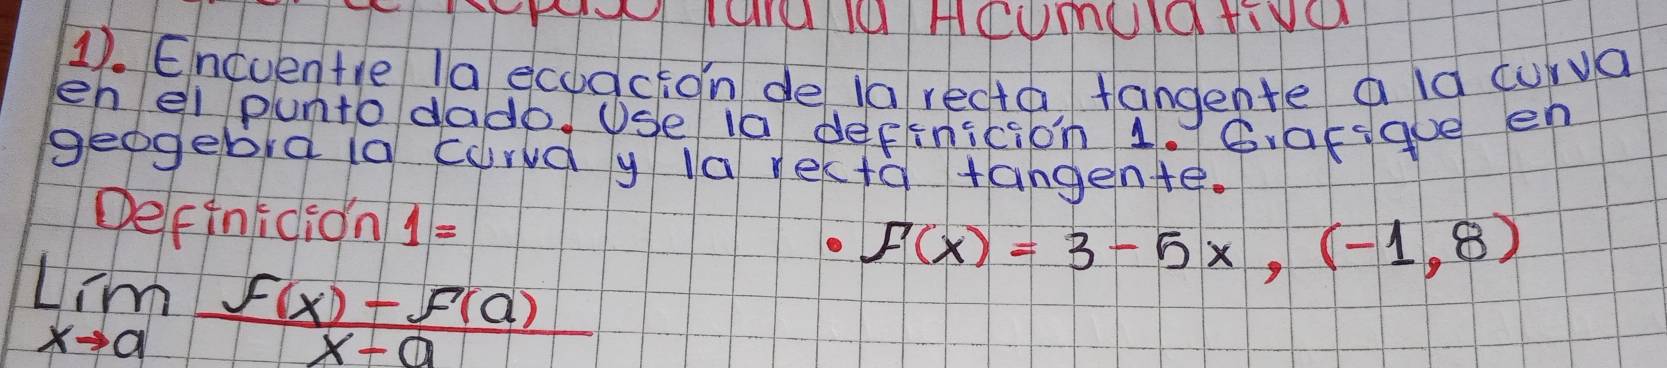 Repaso Para la Acumulativa
1). Encuentre la ecuación de la recta tangente a la curva
en el punto dado. Use la definición 1. Grafique en
geogebra la curva y la recta tangente.
Definición 1=
• F(x) = 3 - 5x, (-1, 8)
Lim F(x) - F(a)
x→a x - a